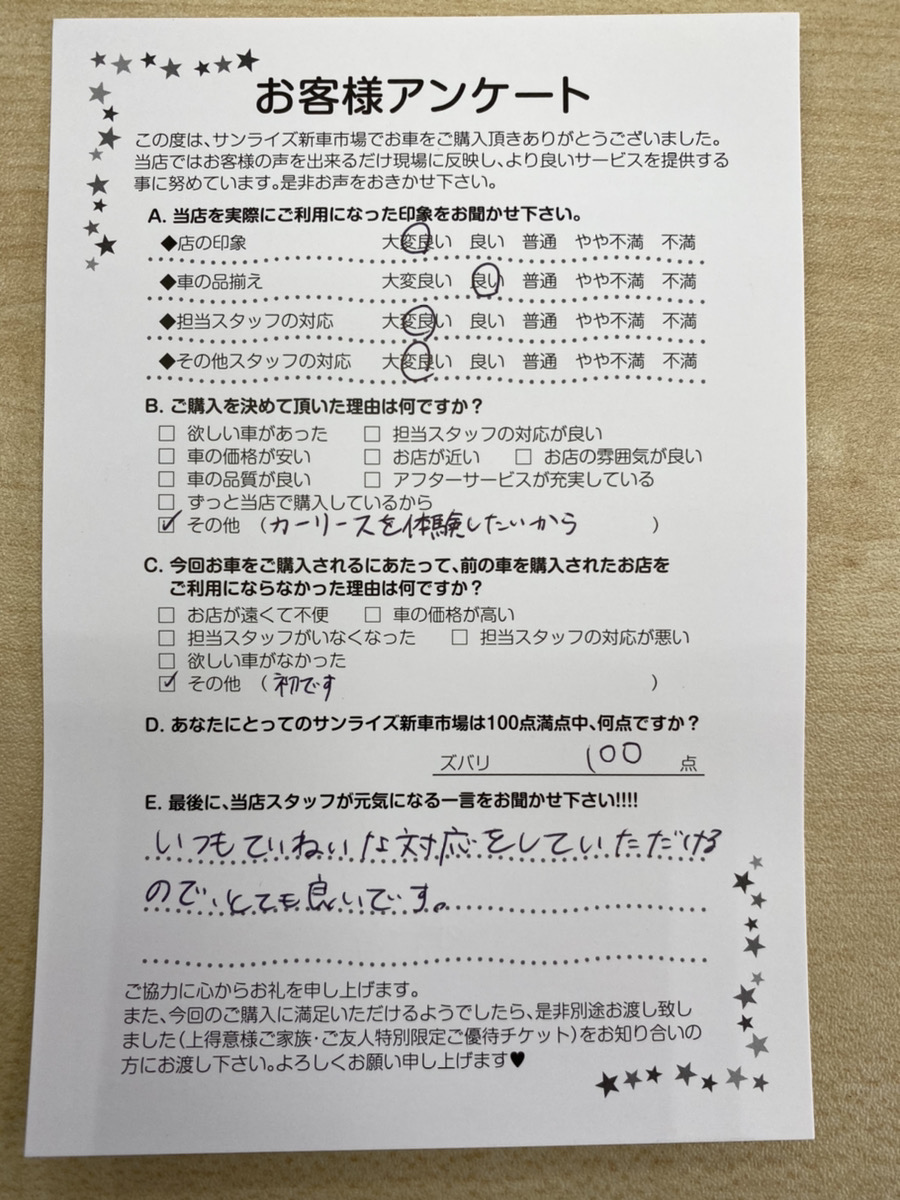 お客様アンケート
この度は、サンライズ新車市場でお車をご購入頂きありがとうございました。
当店ではお客様の声を出来るだけ現場に反映し、より良いサービスを提供する
事に努めています。是非お声をおきかせ下さい。
A. 当店を実際にご利用になった印象をお聞かせ下さい。
◆店の印象 大変良い 良い 普通 やや不満 不満
◆車の品揃え 大変良い 良い 普通 やや不満 不満
◆担当スタッフの対応 大変良い 良い 普通 やや不満 不満
◆その他スタッフの対応 大変良い 良い 普通 やや不満 不満
B. ご購入を決めて頂いた理由は何ですか？
□ 欲しい車があった □ 担当スタッフの対応が良い
□ 車の価格が安い □ お店が近い □ お店の雰囲気が良い
□ 車の品質が良い □ アフターサービスが充実している
□ ずっと当店で購入しているから
☑ その他 （カーリースを体験したいから ）
C. 今回お車をご購入されるにあたって、前の車を購入されたお店を
ご利用にならなかった理由は何ですか？
□ お店が遠くて不便 □ 車の価格が高い
□ 担当スタッフがいなくなった □ 担当スタッフの対応が悪い
□ 欲しい車がなかった
☑ その他 （初です ）
D. あなたにとってのサンライズ新車市場は100点満点中、何点ですか？
ズバリ 100 点
E. 最後に、当店スタッフが元気になる一言をお聞かせ下さい!!!!
いつもていねいな対応をしていただける
ので、とても良いです。
ご協力に心からお礼を申し上げます。
また、今回のご購入に満足いただけるようでしたら、是非別途お渡し致し
ました（上得意様ご家族・ご友人特別限定ご優待チケット）をお知り合いの
方にお渡し下さい。よろしくお願い申し上げます♥